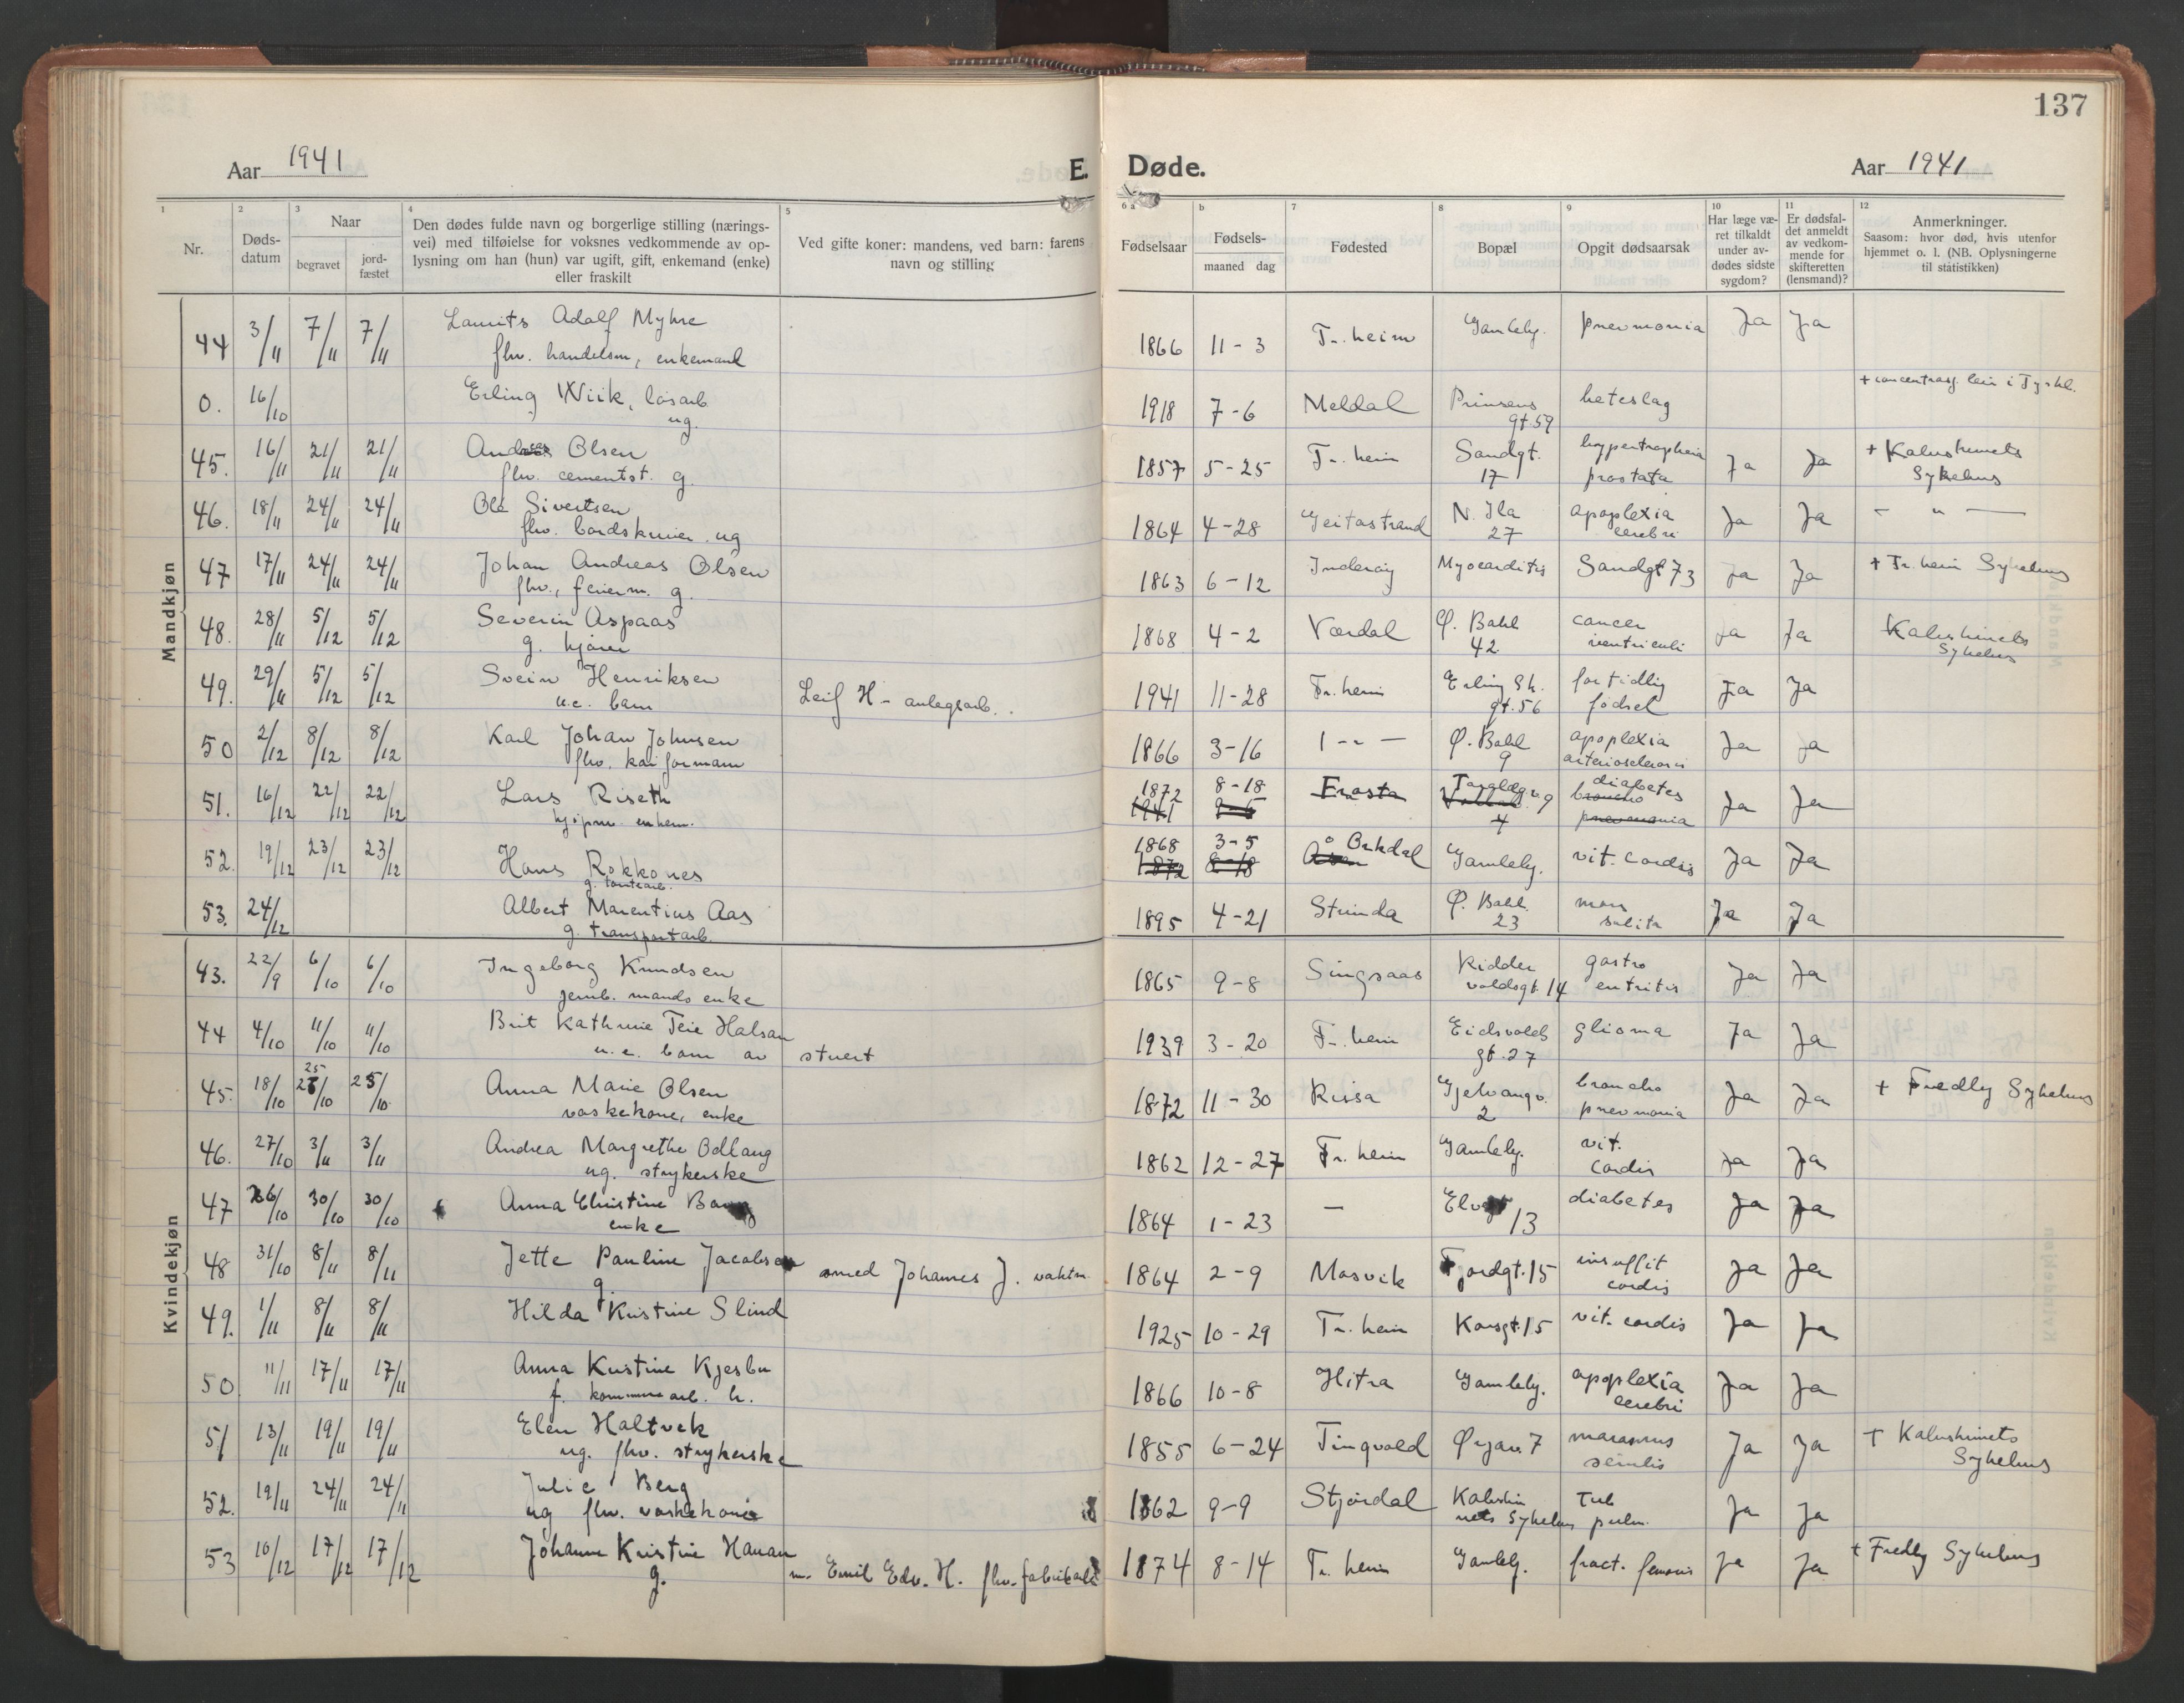 137
Aar 1941 E. Døde. Aar 1941
1 2 3 4 5 6 a b 7 8 9 10 11 12
Nr.
Døds-
datum
Naar
begravet
jord-
fæstet
Den dødes fulde navn og borgerlige stilling (nærings-
vei) med tilføielse for voksnes vedkommende av op-
lysning om han (hun) var ugift, gift, enkemand (enke)
eller fraskilt
Ved gifte koner: mandens, ved barn: farens
navn og stilling
Fødselsaar
Fødsels-
maaned dag
Fødested
Bopæl
Opgit dødsaarsak
Har læge væ-
ret tilkaldt
under av-
dødes sidste
sygdom?
Er dødsfal-
det anmeldt
av vedkom-
mende for
skifteretten
(lensmand)?
Anmerkninger.
Saasom: hvor død, hvis utenfor
hjemmet o. l. (NB. Oplysningerne
til statistikken)
Mandkjøn
44 3/11 7/11 7/11 Laurits Adolf Myhre 1866 11-3 Tr.heim Gamleby. pnevmonia Ja Ja
fhv. handelsm, enkemand
0. 16/10 Erling Wiik, løsarb. 1918 7-6 Meldal Prinsens heteslag + concentrasj. leir i Tyskl.
ug. gt. 59
45. 16/11 21/11 21/11 Andreas Olsen 1857 5-25 Tr. heim Sandgt. hypertropheia Ja Ja + Kalvskinnets
fhv. cementst. g. 17 prostata Sykehus
46. 18/11 24/11 24/11 Ole Sivertsen 1864 4-28 Geitastrand N. Ila apoplexia Ja Ja - " -
fhv. bordskriver. ug 27 cerebri
47 17/11 24/11 24/11 Johan Andreas Olsen 1863 6-12 Inderøy Myocarditis Sandgt 73 Ja Ja + Tr. heim Sykehus
fhv., feierm. g.
48. 28/11 5/12 5/12 Severin Aspaas 1868 4-2 Værdal Ø. Bakl cancer Ja Ja Kalvskinnets
g. kjører 42. ventriculi Sykehus
49. 29/11 5/12 5/12 Svein Henriksen Leif H- anlegsarb. 1941 11-28 Tr. heim Erling Sk. for tidlig Ja Ja
u.e. barn gt. 56 fødsel
50 2/12 8/12 8/12 Karl Johan Johnsen 1866 3-16 Ø. Bakl apoplexia Ja Ja
fhv. kaiformann 9 arteriosclerosis
51. 16/12 22/12 22/12 Lars Riseth 1872 8-18 Frosta diabetes Ja Ja
1941 broncho
enkem. 4 pnevmonia
52. 19/12 23/12 23/12 Hans Rokkones 1868 3-5 Orkdal Gamleby. vit. cordis Ja Ja
1872 8-18 Åsen
g. tomtearb.
53. 24/12 Albert Marentius Aas 1895 4-21 Strinda Ø. Bakl. mors Ja Ja
g. transportarb. 23 subita
Kvindekjøn
43. 22/9 6/10 6/10 Ingeborg Knudsen 1865 9-8 Singsaas Ridder gastro Ja Ja
jernb. mands enke voldsgt. 14 entritis
44 4/10 11/10 11/10 Brit Kathrine Teie Halsan 1939 3-20 Tr. heim Eidsvolds glioma Ja Ja
u.e. barn av stuert gt. 27
45. 18/10 25/10 25/10 Anna Marie Olsen 1872 11-30 Rissa Gjelvangv. broncho Ja Ja + Fredly Sykehus
vaskekone, enke 2 pnevmonia
46. 27/10 3/11 3/11 Andrea Margrethe Odlaug 1862 12-27 Tr. heim Gamleby. vit. Ja Ja
ug. strykerske cordis
47 26/10 30/10 30/10 Anna Christine 1864 1-23 - Elvegt 13 diabetes Ja Ja
enke
48 31/10 8/11 8/11 Jette Pauline Jacobsen med Johannes J. vaktm. 1864 2-9 Mosvik Fjordgt. 15 insuffit Ja Ja
g. cordis
49. 1/11 8/11 8/11 Hilda Kristine Slind 1925 10-29 Tr. heim Korsgt. 15 vit. cordis Ja Ja
50 11/11 17/11 17/11 Anna Kristine Kjesbu 1866 10-8 Hitra Gamleby. apoplexia Ja Ja
f. kommunearb. h. cerebri
51 13/11 19/11 19/11 Elen Haltvik 1855 6-24 Tingvold Øyav. 7 marasmus Ja Ja + Kalvskinnets
ug. fhv. strykerske senilis Sykehus
52. 19/11 24/11 24/11 Julie Berg 1862 9-9 Stjørdal Kalvskin Tub Ja Ja
ug fhv. vaskekone nets Sykehus pulm.
53 10/12 17/12 17/12 Johanne Kristine Hanan m. Emil Edv. H. fhv. fabrikarb. 1874 8-14 Tr. heim Gamleby. fract. femoris Ja Ja + Fredly Sykehus
g.